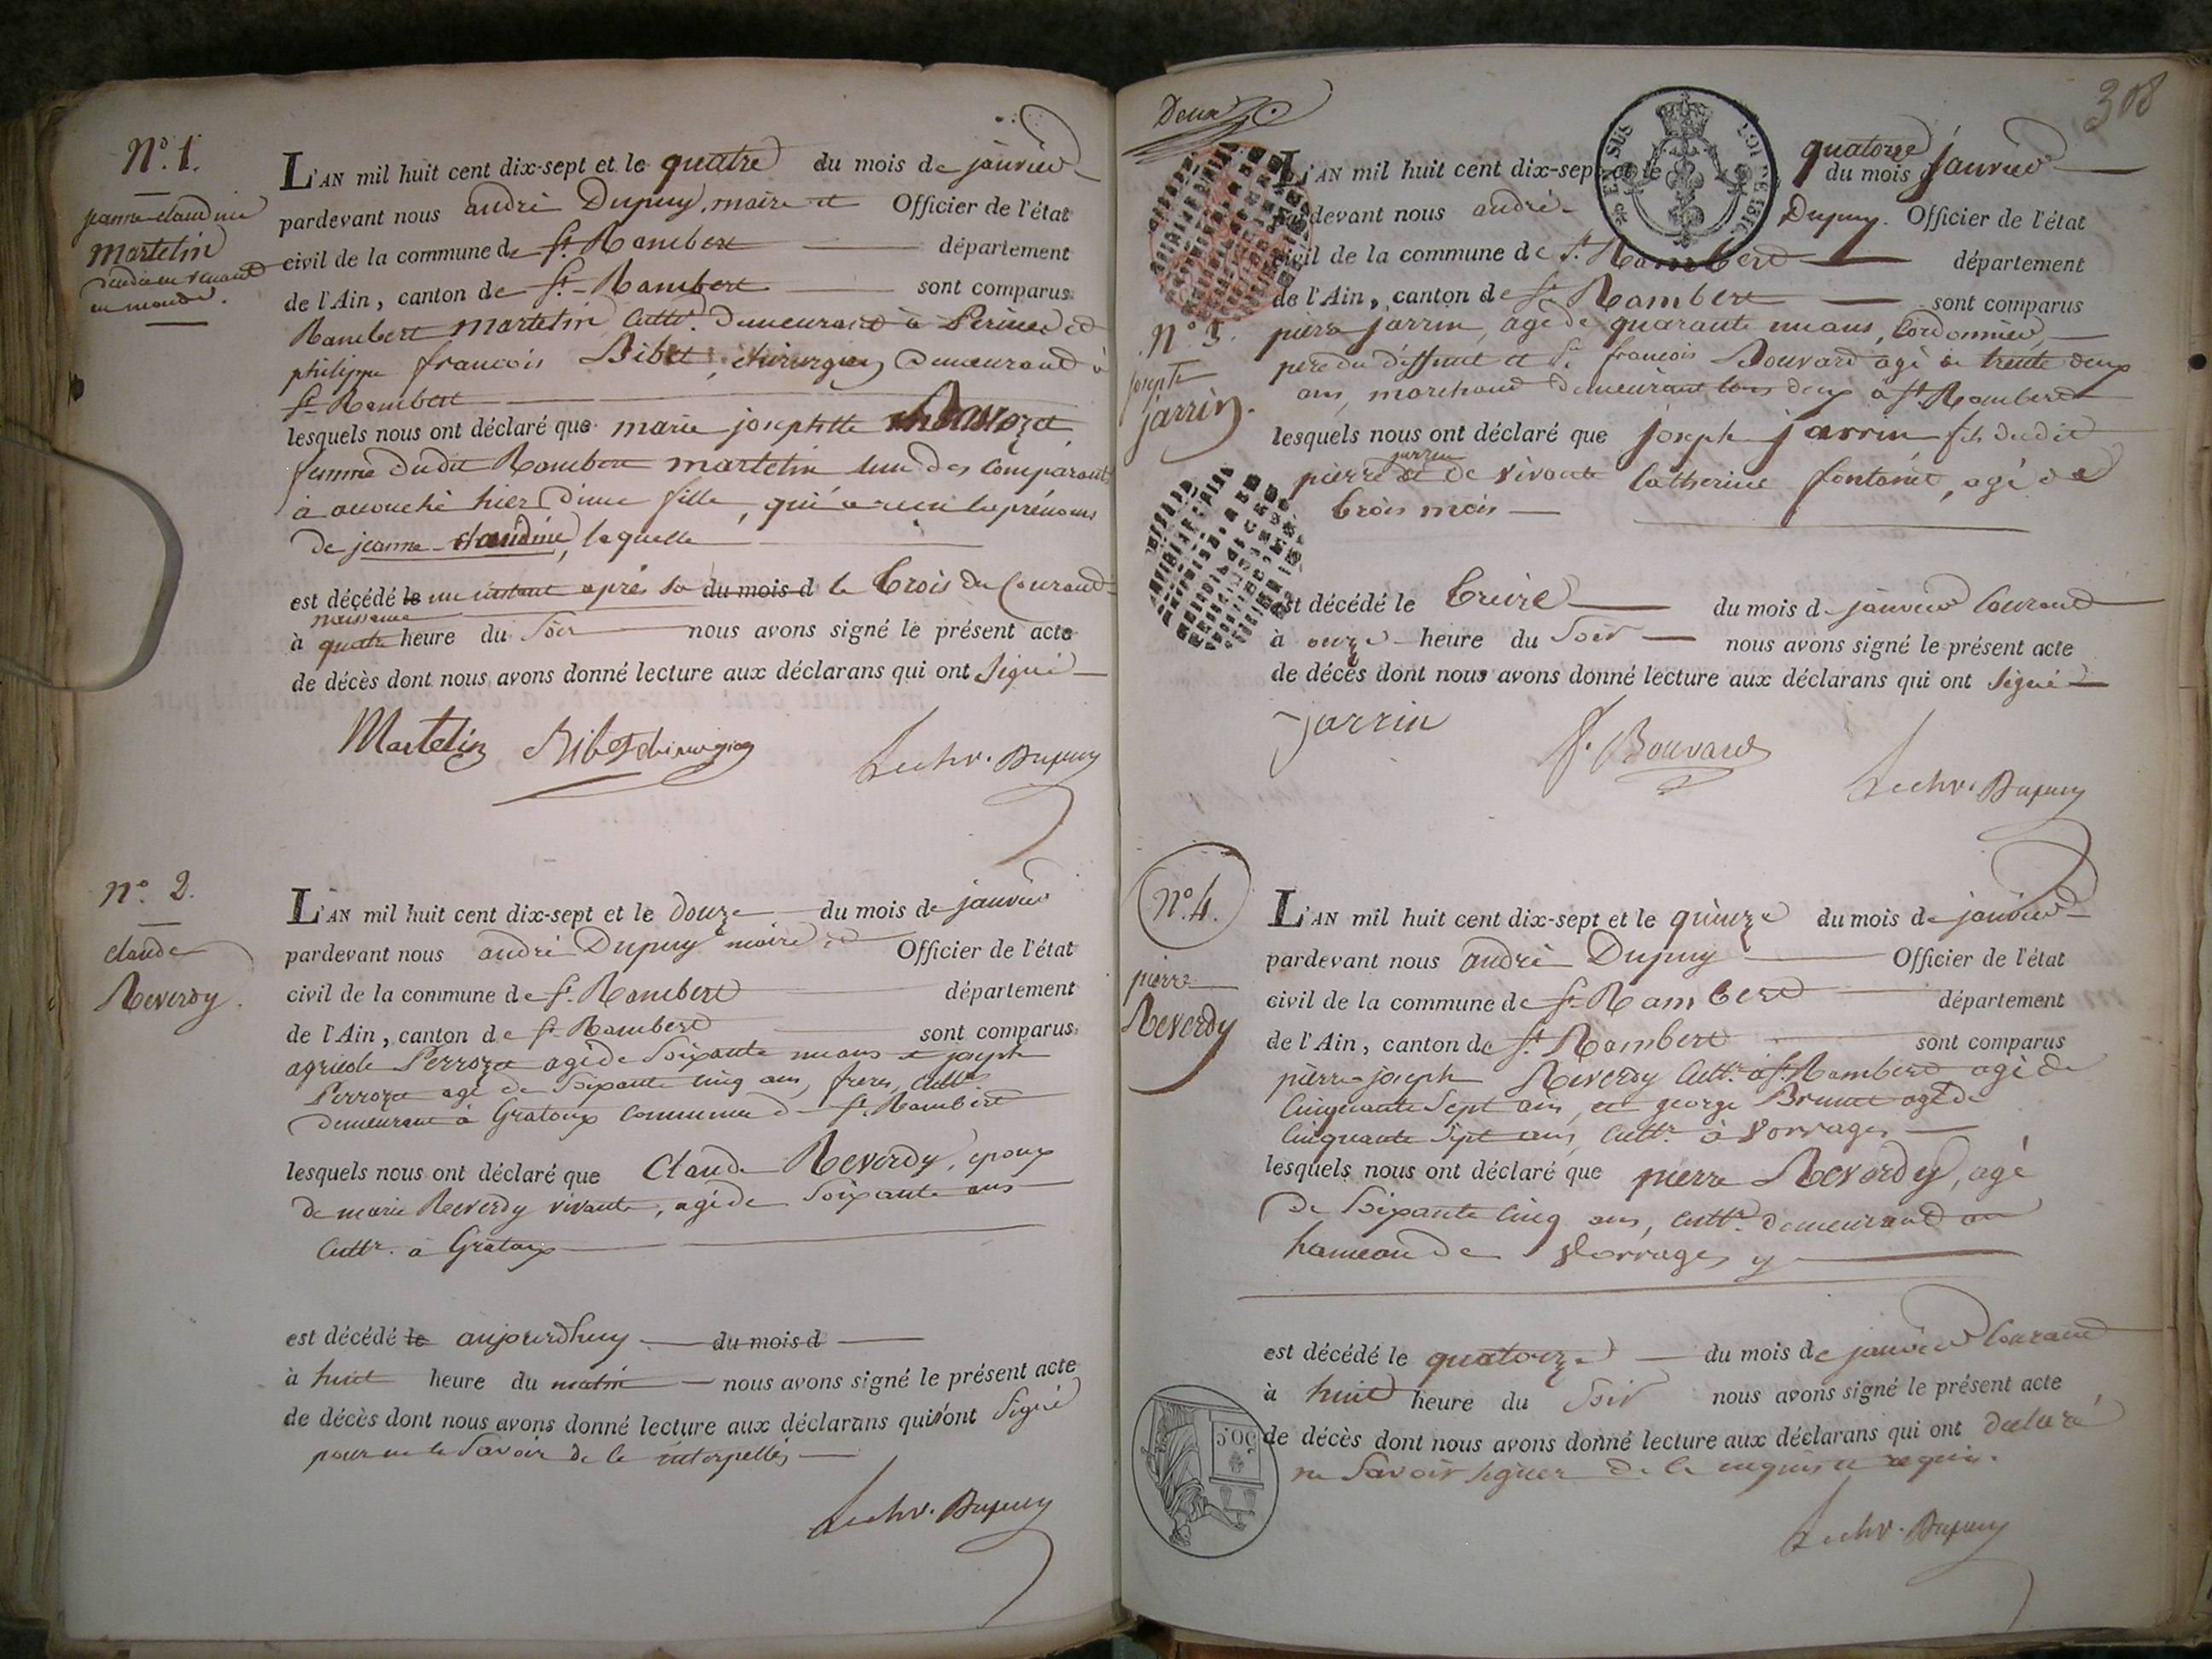 N° 1.
jeanne claudine
Martelin
en monde.
L'AN mil huit cent dix-sept et le quatre du mois de janvier
pardevant nous andré Dupuy, maire et Officier de l'état
civil de la commune de St. Rambert département
de l'Ain, canton de St. Rambert sont comparus
Rambert Martelin Cultr. demeurant à et
philippe françois Bibet, chirurgien demeurant à
St. Rambert
lesquels nous ont déclaré que marie josephtte
femme dudit Rambert martelin l'un des Comparants
à accouché hier d'une fille, qui a reçu les prénoms
de jeanne claudine, laquelle
est décédé le un instant après sa du mois d le trois du Courant
naissance
à quatre heure du soir nous avons signé le présent acte
de décès dont nous avons donné lecture aux déclarans qui ont signé
Martelin Bibet chirurgien
Dupuy
N° 2.
claude
Reverdy.
L'AN mil huit cent dix-sept et le douze du mois de janvier
pardevant nous andré Dupuy maire et Officier de l'état
civil de la commune de St. Rambert département
de l'Ain, canton de St. Rambert sont comparus
agricole Perrozet agé de soixante un ans et joseph
Perrozet agé de soixante cinq ans, freres, Cultr.
demeurant à Gratoux commune de St. Rambert
lesquels nous ont déclaré que Claude Reverdy, epoux
de marie Reverdy vivante, agé de soixante ans
Cultr. à Gratoux
est décédé le aujourdhuy du mois d
à huit heure du matin nous avons signé le présent acte
de décès dont nous avons donné lecture aux déclarans qui n'ont signé
pour ne le savoir de ce interpellés
Dupuy
Deux
308
L'AN mil huit cent dix-sept et le quatorze du mois janvier
pardevant nous andré Dupuy. Officier de l'état
civil de la commune de St. Rambert département
de l'Ain, canton de St. Rambert sont comparus
N° 3.
joseph
jarrin.
pierre jarrin, agé de quarante un ans, Cordonnier,
pere du déffunt et Sr. françois Bouvard agé de trente deux
ans, marchand demeurant tous deux à St. Rambert
lesquels nous ont déclaré que joseph jarrin fils dudit
pierre jarrin et de vivante Catherine fontanet, agé de
trois mois
est décédé le treize du mois de janvier Courant
à onze heure du soir nous avons signé le présent acte
de décès dont nous avons donné lecture aux déclarans qui ont signé
jarrin
f. Bouvard
Dupuy
N° 4.
pierre
Reverdy
L'AN mil huit cent dix-sept et le quinze du mois de janvier
pardevant nous andré Dupuy Officier de l'état
civil de la commune de St. Rambert département
de l'Ain, canton de St. Rambert sont comparus
pierre joseph Reverdy Cultr. à St. Rambert agé de
Cinquante sept ans, et george Brunet agé de
Cinquante sept ans, Cultr. à Vorrages
lesquels nous ont déclaré que pierre Reverdy, agé
de soixante cinq ans, Cultr. demeurant au
hameau de Vorrages y
est décédé le quatorze du mois de janvier Courant
à huit heure du soir nous avons signé le présent acte
de décès dont nous avons donné lecture aux déclarans qui ont déclaré
ne savoir signer de ce enquis et requis.
Dupuy
50C